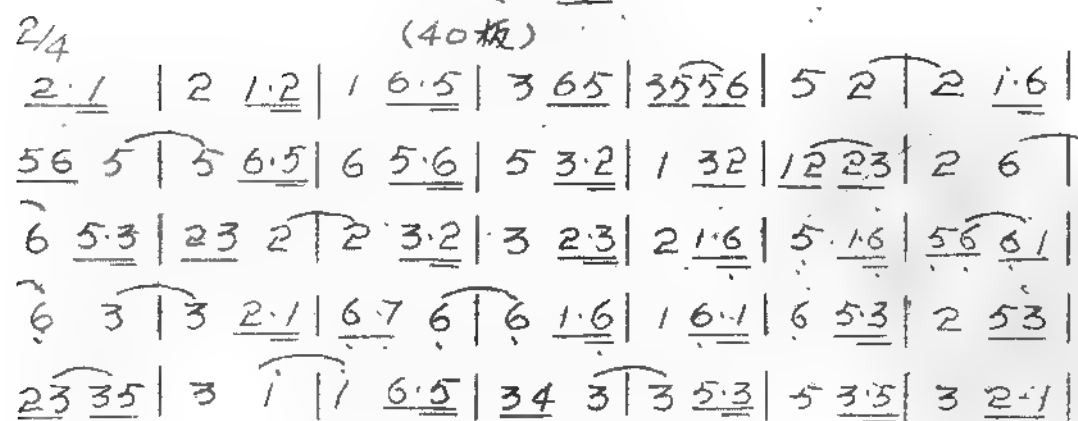 2/4 (40板)
2·1 | 2 1·2 | 1 6·5 | 3 65 | 3556 | 5 2 | 2 1·6 |
56 5 | 5 6·5 | 6 5·6 | 5 3·2 | 1 32 | 12 23 | 2 6 |
6 5·3 | 23 2 | 2 3·2 | 3 2·3 | 2 1·6 | 5· 1·6 | 56 61 |
6 3 | 3 2·1 | 6·7 6 | 6 1·6 | 1 6·1 | 6 5·3 | 2 53 |
23 35 | 3 i | i 6·5 | 34 3 | 3 5·3 | 5 3·5 | 3 2·1 |